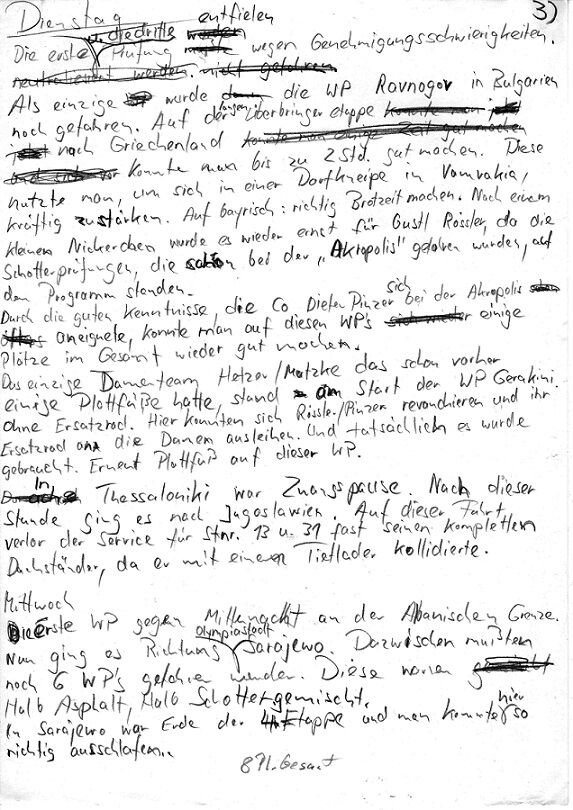 3)
Dienstag
Die erste u. die dritte Prüfung entfielen wegen Genehmigungsschwierigkeiten.
Als einzige wurde die WP Ravnogor in Bulgarien
noch gefahren. Auf der langen Überbringeretappe
nach Griechenland
konnte man bis zu 2 Std. gut machen. Diese
nutzte man, um sich in einer Dorfkneipe in Vamvakia,
kräftig zu stärken. Auf bayrisch: richtig Brotzeit machen. Nach einem
kleinen Nickerchen wurde es wieder ernst für Gustl Rössler, da die
Schotterprüfungen, die schon bei der „Akropolis" gefahren wurden, auf
dem Programm standen.
Durch die guten Kenntnisse, die Co Dieter Pinzer sich bei der Akropolis
aneignete, konnte man auf diesen WP's einige
Plätze im Gesamt wieder gut machen.
Das einzige Damenteam Hetzer/Matzke das schon vorher
einige Plattfüße hatte, stand am Start der WP Gerakini
ohne Ersatzrad. Hier konnten sich Rössler/Pinzer revanchieren und ihr
Ersatzrad an die Damen ausleihen. Und tatsächlich es wurde
gebraucht. Erneut Plattfuß auf dieser WP.
In Thessaloniki war Zwangspause. Nach dieser
Stunde ging es nach Jugoslawien. Auf dieser Fahrt,
verlor der Service für Stnr. 13 u. 31 fast seinen kompletten
Dachständer, da er mit einem Tieflader kollidierte.
Mittwoch
Erste WP gegen Mitternacht an der Albanischen Grenze.
Nun ging es Richtung Olympiastadt Sarajewo. Dazwischen mußten
noch 6 WP's gefahren werden. Diese waren
Halb Asphalt, Halb Schotter gemischt.
In Sarajewo war Ende der 4. Etappe und man konnte hier so
richtig ausschlafen..
8 Pl. Gesamt